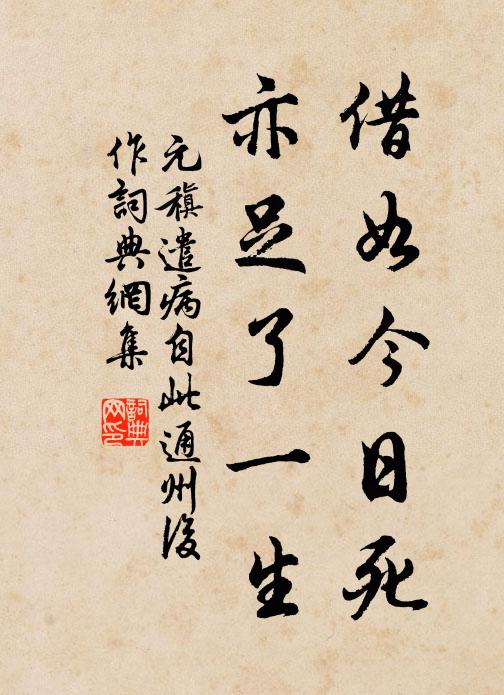 借如今日死
亦足了一生
元稹遣病自此通州後
作詞典網集
詞典
网印